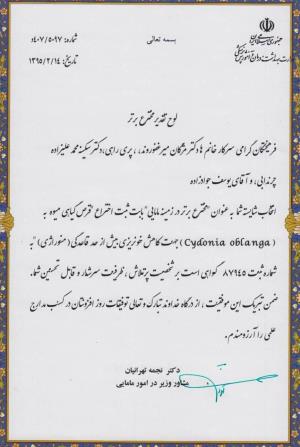 بسمه تعالی
شماره: ۴۰۷/۵۰۹۷د
تاریخ: ۱۳۹۵/۲/۱۴
جمهوری اسلامی ایران
وزارت بهداشت، درمان و آموزش پزشکی
لوح تقدیر مخترع برتر
فرهیختگان گرامی سرکار خانم ها دکتر مژگان میرغفوروند، پری راهی، دکتر سکینه محمد علیزاده
چرندابی، و آقای یوسف جوادزاده
انتخاب شایسته شما به عنوان "مخترع برتر در زمینه مامایی" بابت ثبت اختراع "قرص گیاهی میوه به
(Cydonia oblanga) جهت کاهش خونریزی بیش از حد قاعدگی (منوراژی)" به
شماره ثبت ۸۷۹۴۵ گواهی است بر شخصیت پرتلاش، ظرفیت سرشار و قابل تحسین شما.
ضمن تبریک این موفقیت، از درگاه خداوند تبارک و تعالی توفیقات روز افزونتان در کسب مدارج
علمی را آرزومندم.
دکتر نجمه تهرانیان
مشاور وزیر در امور مامایی